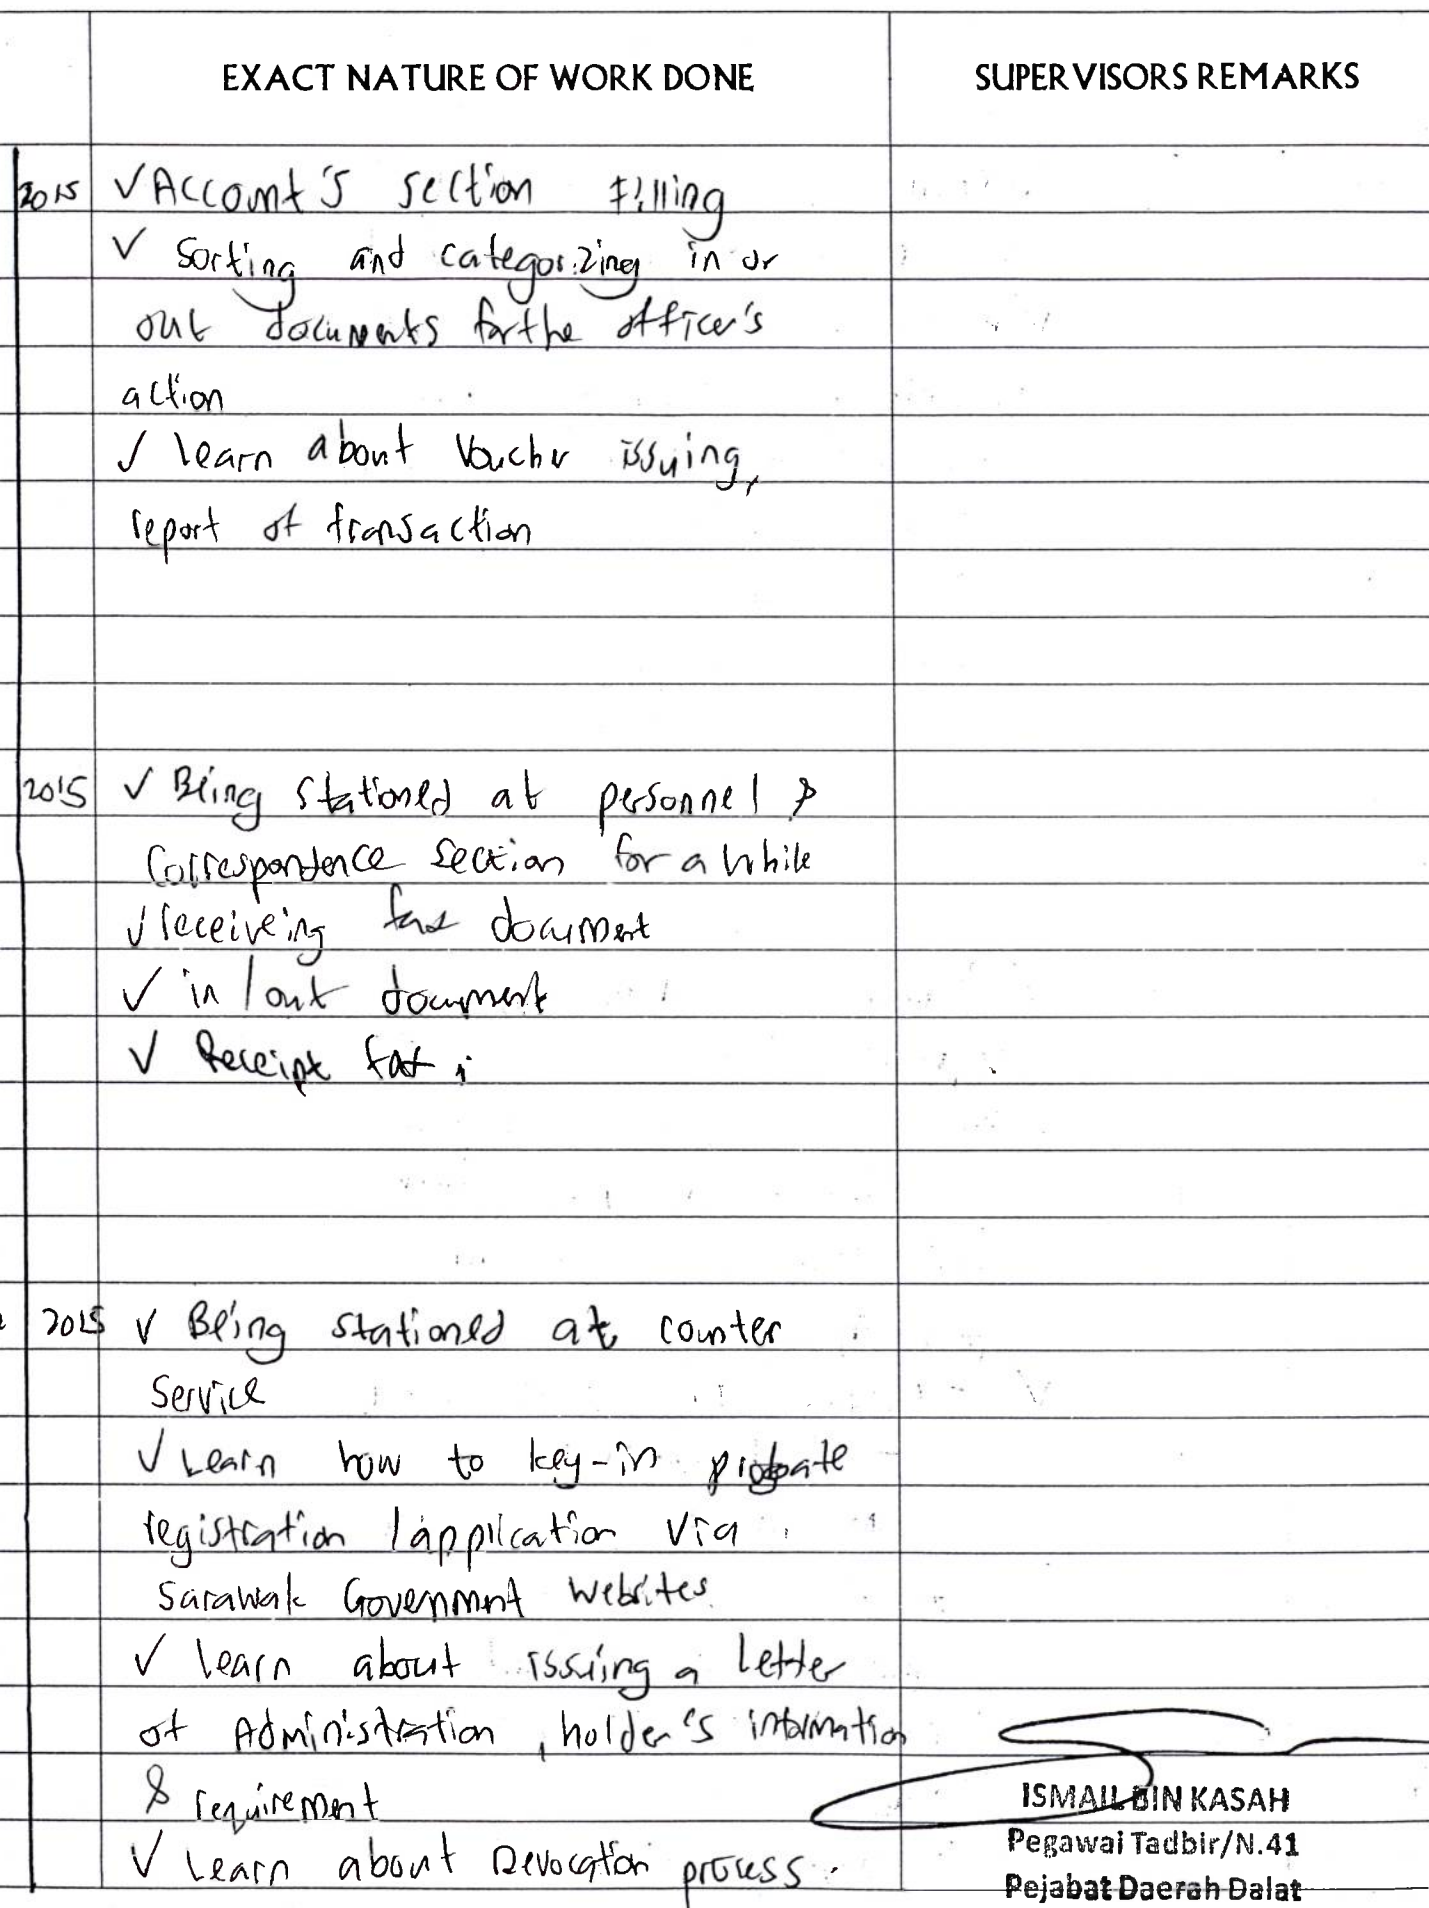 EXACT NATURE OF WORK DONE SUPERVISORS REMARKS
2015 ✓ Account's section filling
✓ Sorting and categorizing in or
out documents for the officer's
action
✓ learn about Voucher issuing,
report of transaction
2015 ✓ Being stationed at personnel &
Correspondence section for a while
✓ receiveing document
✓ in / out document
✓ Receipt
2015 ✓ Being stationed at counter
Service
✓ Learn how to key-in probate
registration / application via
Sarawak Government websites.
✓ learn about issuing a letter
of Administration, holder's information
& requirement
✓ Learn about process.
ISMAIL BIN KASAH
Pegawai Tadbir/N.41
Pejabat Daerah Dalat